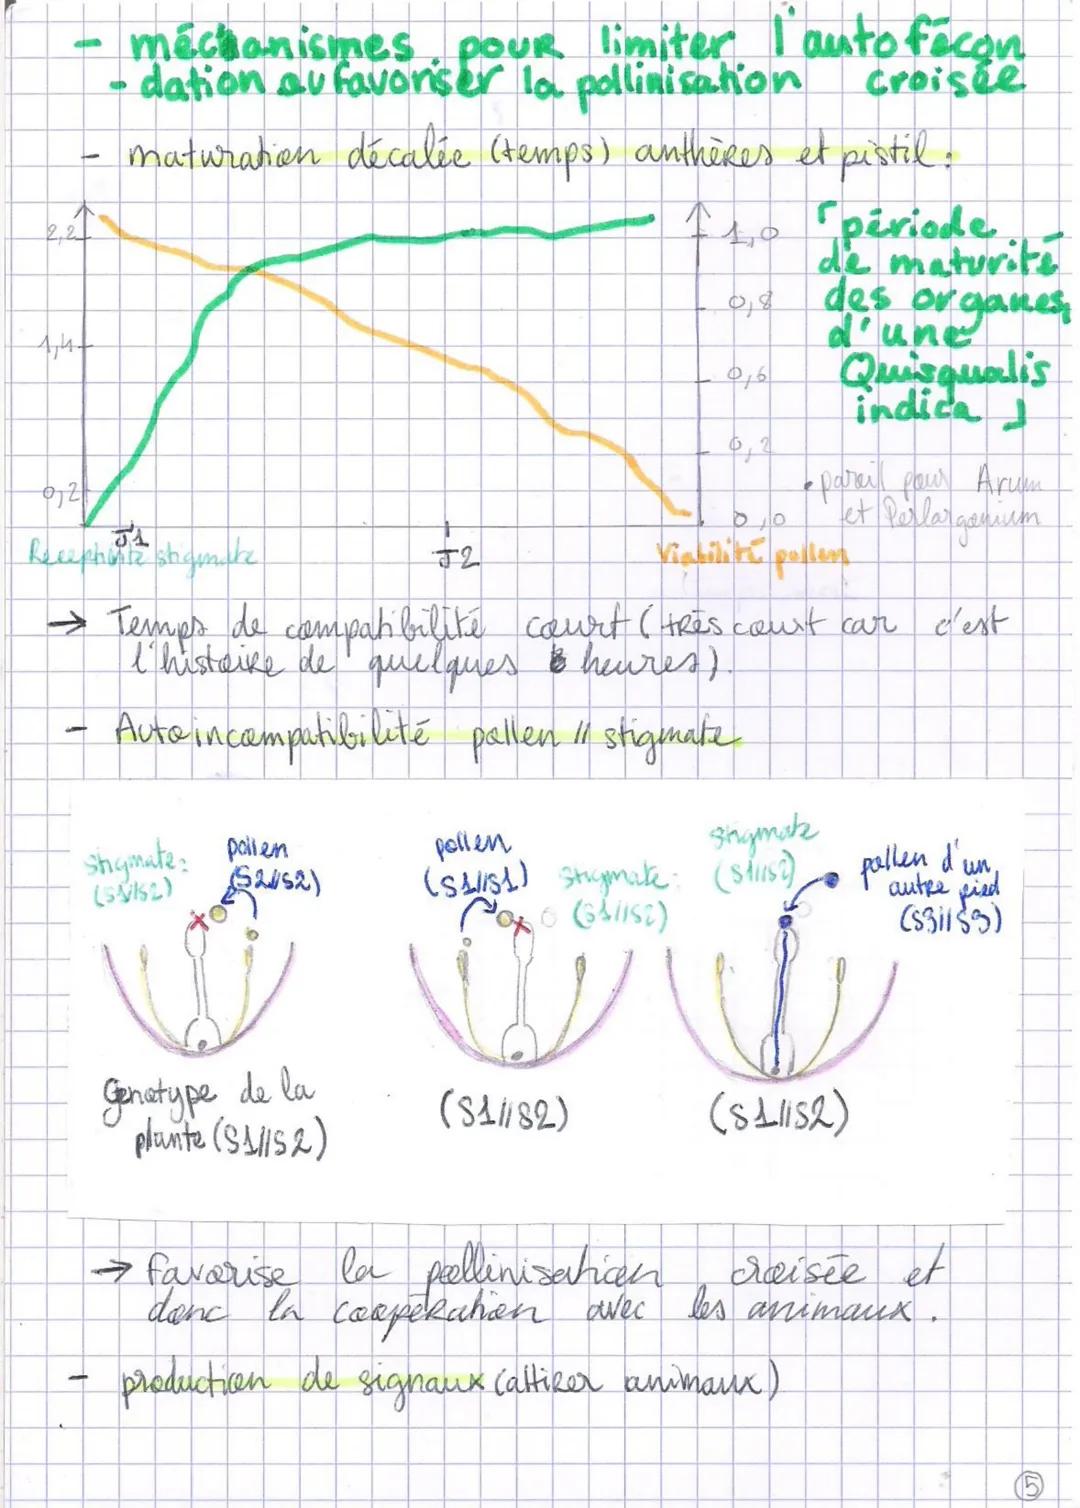 - méchanismes pour limiter l'autofécon
- dation ou favoriser la pollinisation croisée
- maturation décalée (temps) anthères et pistil :
2,2
1,4
0,2
J1
J2
1,0
0,8
0,6
0,2
0,0
Receptivité stigmate
Viabilité pollen
「période
de maturité
des organes
d'une
Quisqualis
indica 」
• pareil pour Arum
et Perlargonium
→ Temps de compatibilité court (très court car c'est
l'histoire de quelques heures).
- Autoincompatibilité pollen // stigmate
stigmate:
(S1//S2)
pollen
(S2//S2)
Genotype de la
plante (S1//S2)
pollen
(S1//S1)
stigmate:
(S1//S2)
(S1//S2)
stigmate
(S1//S2)
pollen d'un
autre pied
(S3//S3)
(S1//S2)
→ favorise la pollinisation croisée et
donc la coopération avec les animaux.
- production de signaux (attirer animaux)
5